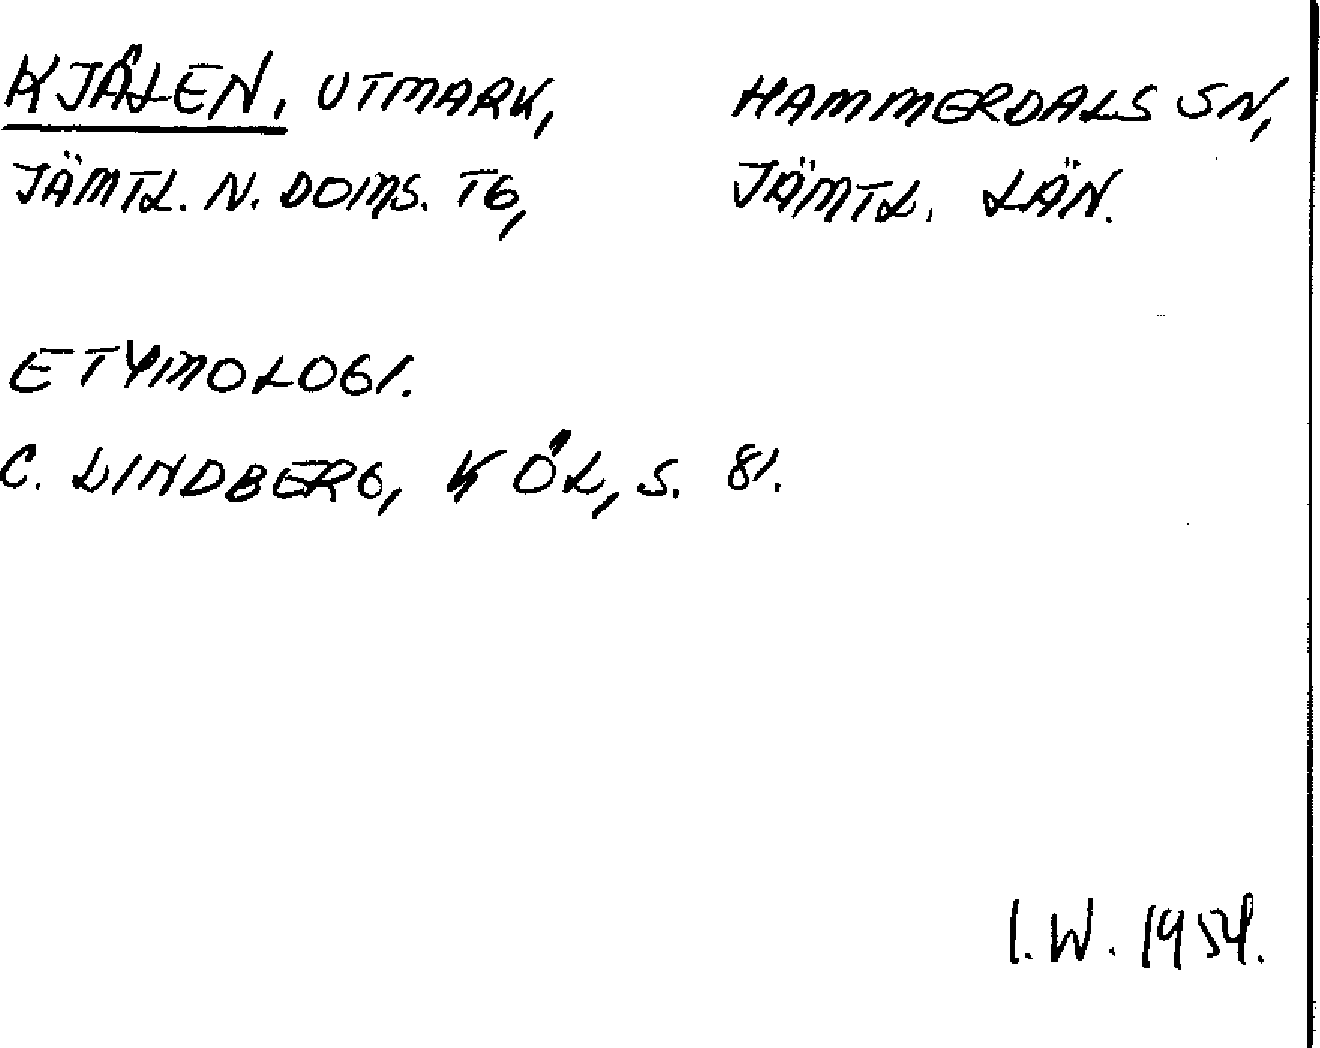 KJÅLEN, UTMARK, HAMMERDALS SN,
JÄMTL. N. DOMS. TG, JÄMTL. LÄN.
ETYMOLOGI.
C. LINDBERG, KÖL, S. 81.
I.W. 1954.